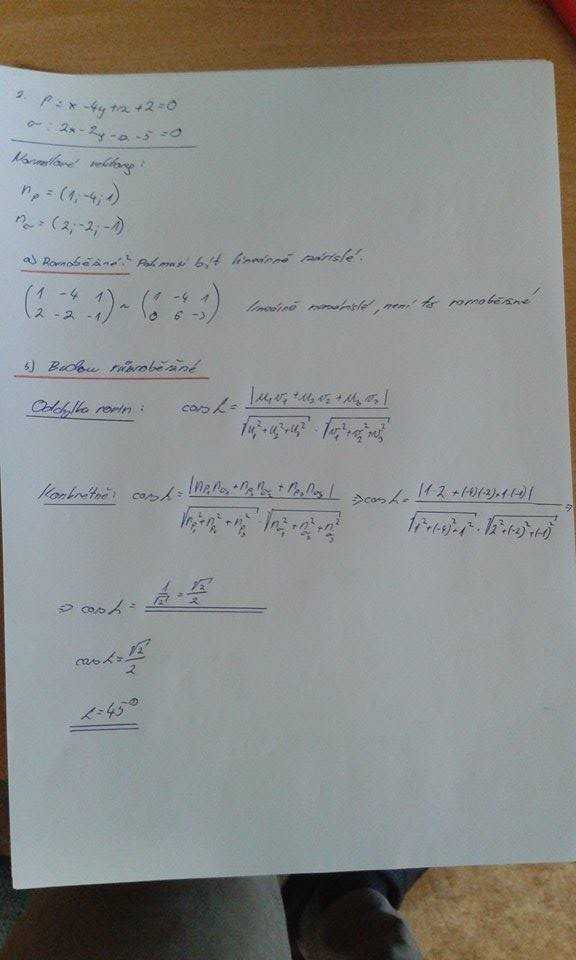 2. ρ = x - 4y + z + 2 = 0
σ: 2x - 2y - z - 5 = 0
Normálové vektory:
n_ρ = (1;-4;1)
n_σ = (2;-2;-1)
a) Rovnoběžné? Pak musí být lineárně závislé.
(1 -4 1 / 2 -2 -1) ~ (1 -4 1 / 0 6 -3) lineárně nezávislé, není to rovnoběžné
b) Budou různoběžné
Odchylka rovin: cos α = |u₁v₁ + u₂v₂ + u₃v₃| / √(u₁² + u₂² + u₃²) · √(v₁² + v₂² + v₃²)
Konkrétně: cos α = |n_ρ₁n_σ₁ + n_ρ₂n_σ₂ + n_ρ₃n_σ₃| / √(n_ρ₁² + n_ρ₂² + n_ρ₃²) · √(n_σ₁² + n_σ₂² + n_σ₃²) ⇒ cos α = |1·2 + (-4)(-2) + 1·(-1)| / √(1² + (-4)² + 1²) · √(2² + (-2)² + (-1)²) ⇒
⇒ cos α = 1/√2 = √2/2
cos α = √2/2
α = 45°